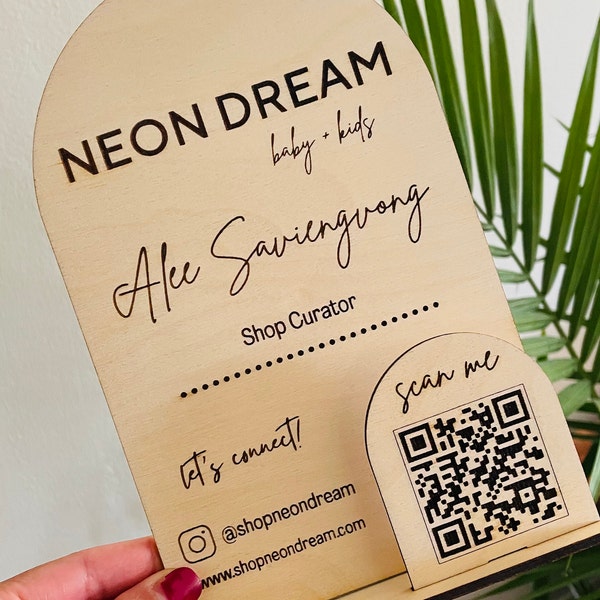 NEON DREAM
baby + kids
Alee Saviengvong
Shop Curator
let's connect!
@shopneondream
www.shopneondream.com
scan me